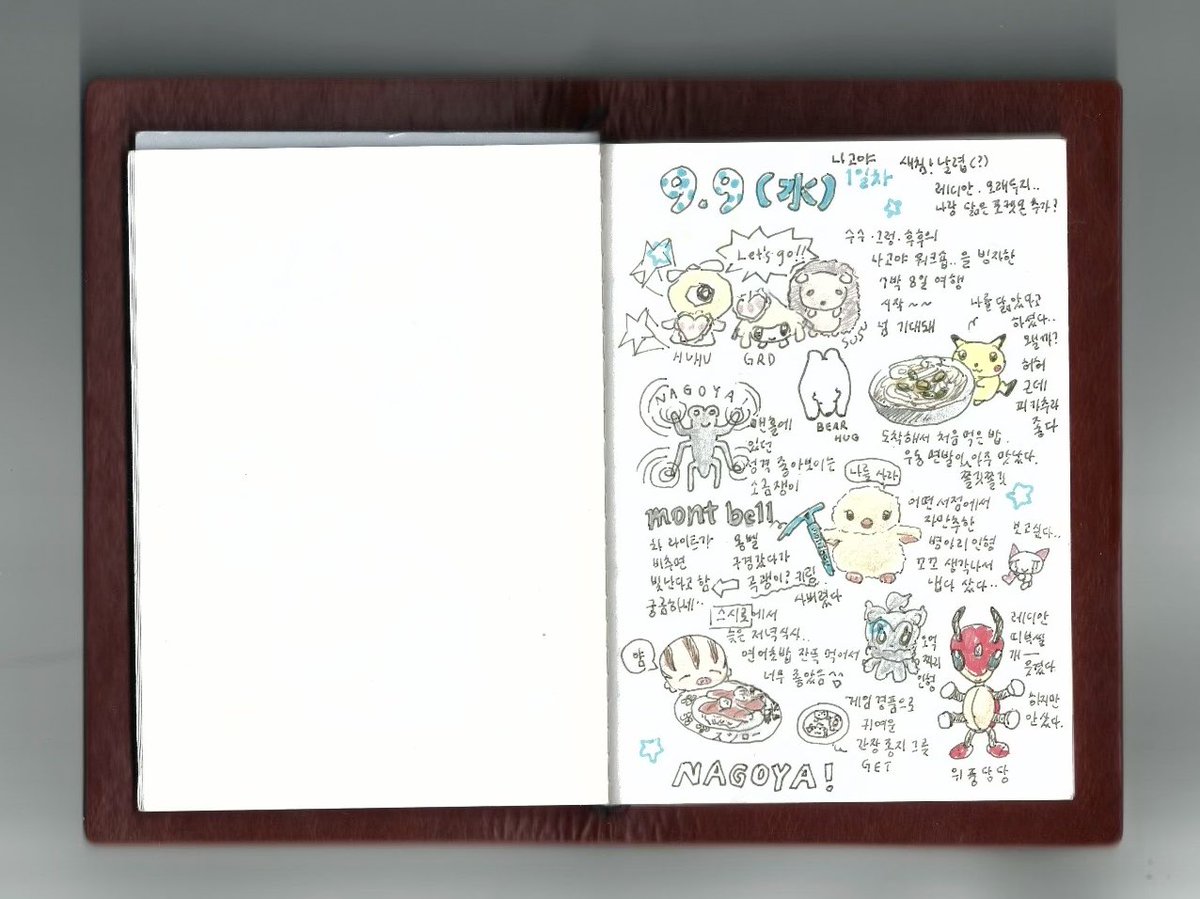 9.9(水)
나고야
1일차
새침! 날렵(?)
레디안. 오래두지..
나랑 닮은 포켓몬 추가?
Let's go!!
HUHU
GRD
SUSU
수수·그렁·후후의
나고야 워크숍..을 빙자한
7박 8일 여행
시작 ~~
넘 기대돼
나를 닮았다고
하셨다..
왜일까?
허허
근데
피카츄라
좋다
BEAR
HUG
도착해서 처음 먹은 밥.
우동 면발이 아주 맛났다.
쫄깃쫄깃
NAGOYA!
맨홀에
있던
성격 좋아보이는
소금쟁이
나를 사라
어떤 서점에서
자만추한
병아리 인형
꼬꼬 생각나서
냅다 샀다..
보고싶다..
mont bell
차 라이트가
비추면
빛난다고 함
궁금하네..
몽벨
구경갔다가
곡괭이? 키링
사버렸다
montbell
스시로에서
늦은 저녁식사..
연어초밥 잔뜩 먹어서
너무 좋았음
얌
スシロー
게임 경품으로
귀여운
간장 종지 그릇
GET
인형
레디안
띠부씰
개—
웃겼다
하지만
안샀다.
위풍담당
NAGOYA!